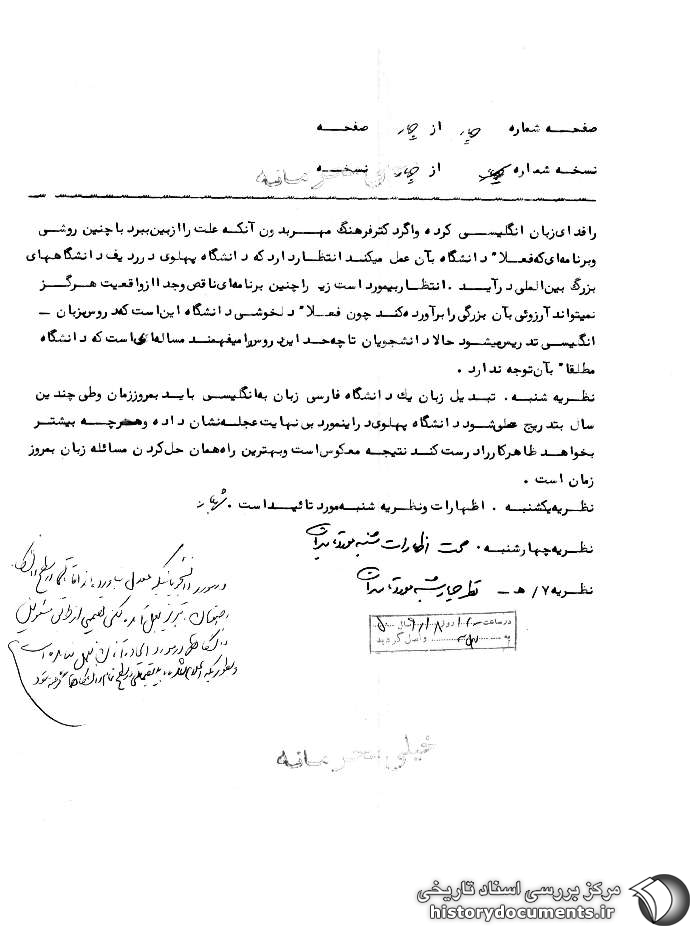 صفحه شماره چهار از چهار صفحه
نسخه شماره از چهار نسخه
خیلی محرمانه
را فدای زبان انگلیسی کرده واگر دکتر فرهنگ مهر بدون آنکه علت را ازبین ببرد با چنین روشی
وبرنامه‌ای که فعلا" دانشگاه بآن عمل میکند انتظار دارد که دانشگاه پهلوی در ردیف دانشگاههای
بزرگ بین المللی درآید . انتظار بیمورد است زیرا چنین برنامه‌ای ناقص وجدا ازواقعیت هرگز
نمیتواند آرزوئی بآن بزرگی را برآورده کند چون فعلا" دلخوشی دانشگاه این است که دروس بزبان -
انگیسی تدریس میشود حالا دانشجویان تا چه حد این دروس را میفهمند مساله‌ای است که دانشگاه
مطلقا" بآن توجه ندارد .
نظریه شنبه . تبدیل زبان یك دانشگاه فارسی زبان به انگلیسی باید بمرور زمان وطی چندین
سال بتدریج عملی شود دانشگاه پهلوی در اینمورد بی نهایت عجله نشان داده وهرچه بیشتر
بخواهد ظاهر کار را درست کند نتیجه معکوس است وبهترین راه همان حل کردن مسائله زبان بمرور
زمان است .
نظریه یکشنبه . اظهارات ونظریه شنبه مورد تائید است .
نظریه چهارشنبه . صحت اظهارات شنبه مورد تائید است
نظریه 7/ هـ - نظریه چهارشنبه مورد تائید است
در ساعت روز سال
به واصل گردید
خیلی محرمانه
مرکز بررسی اسناد تاریخی
historydocuments.ir